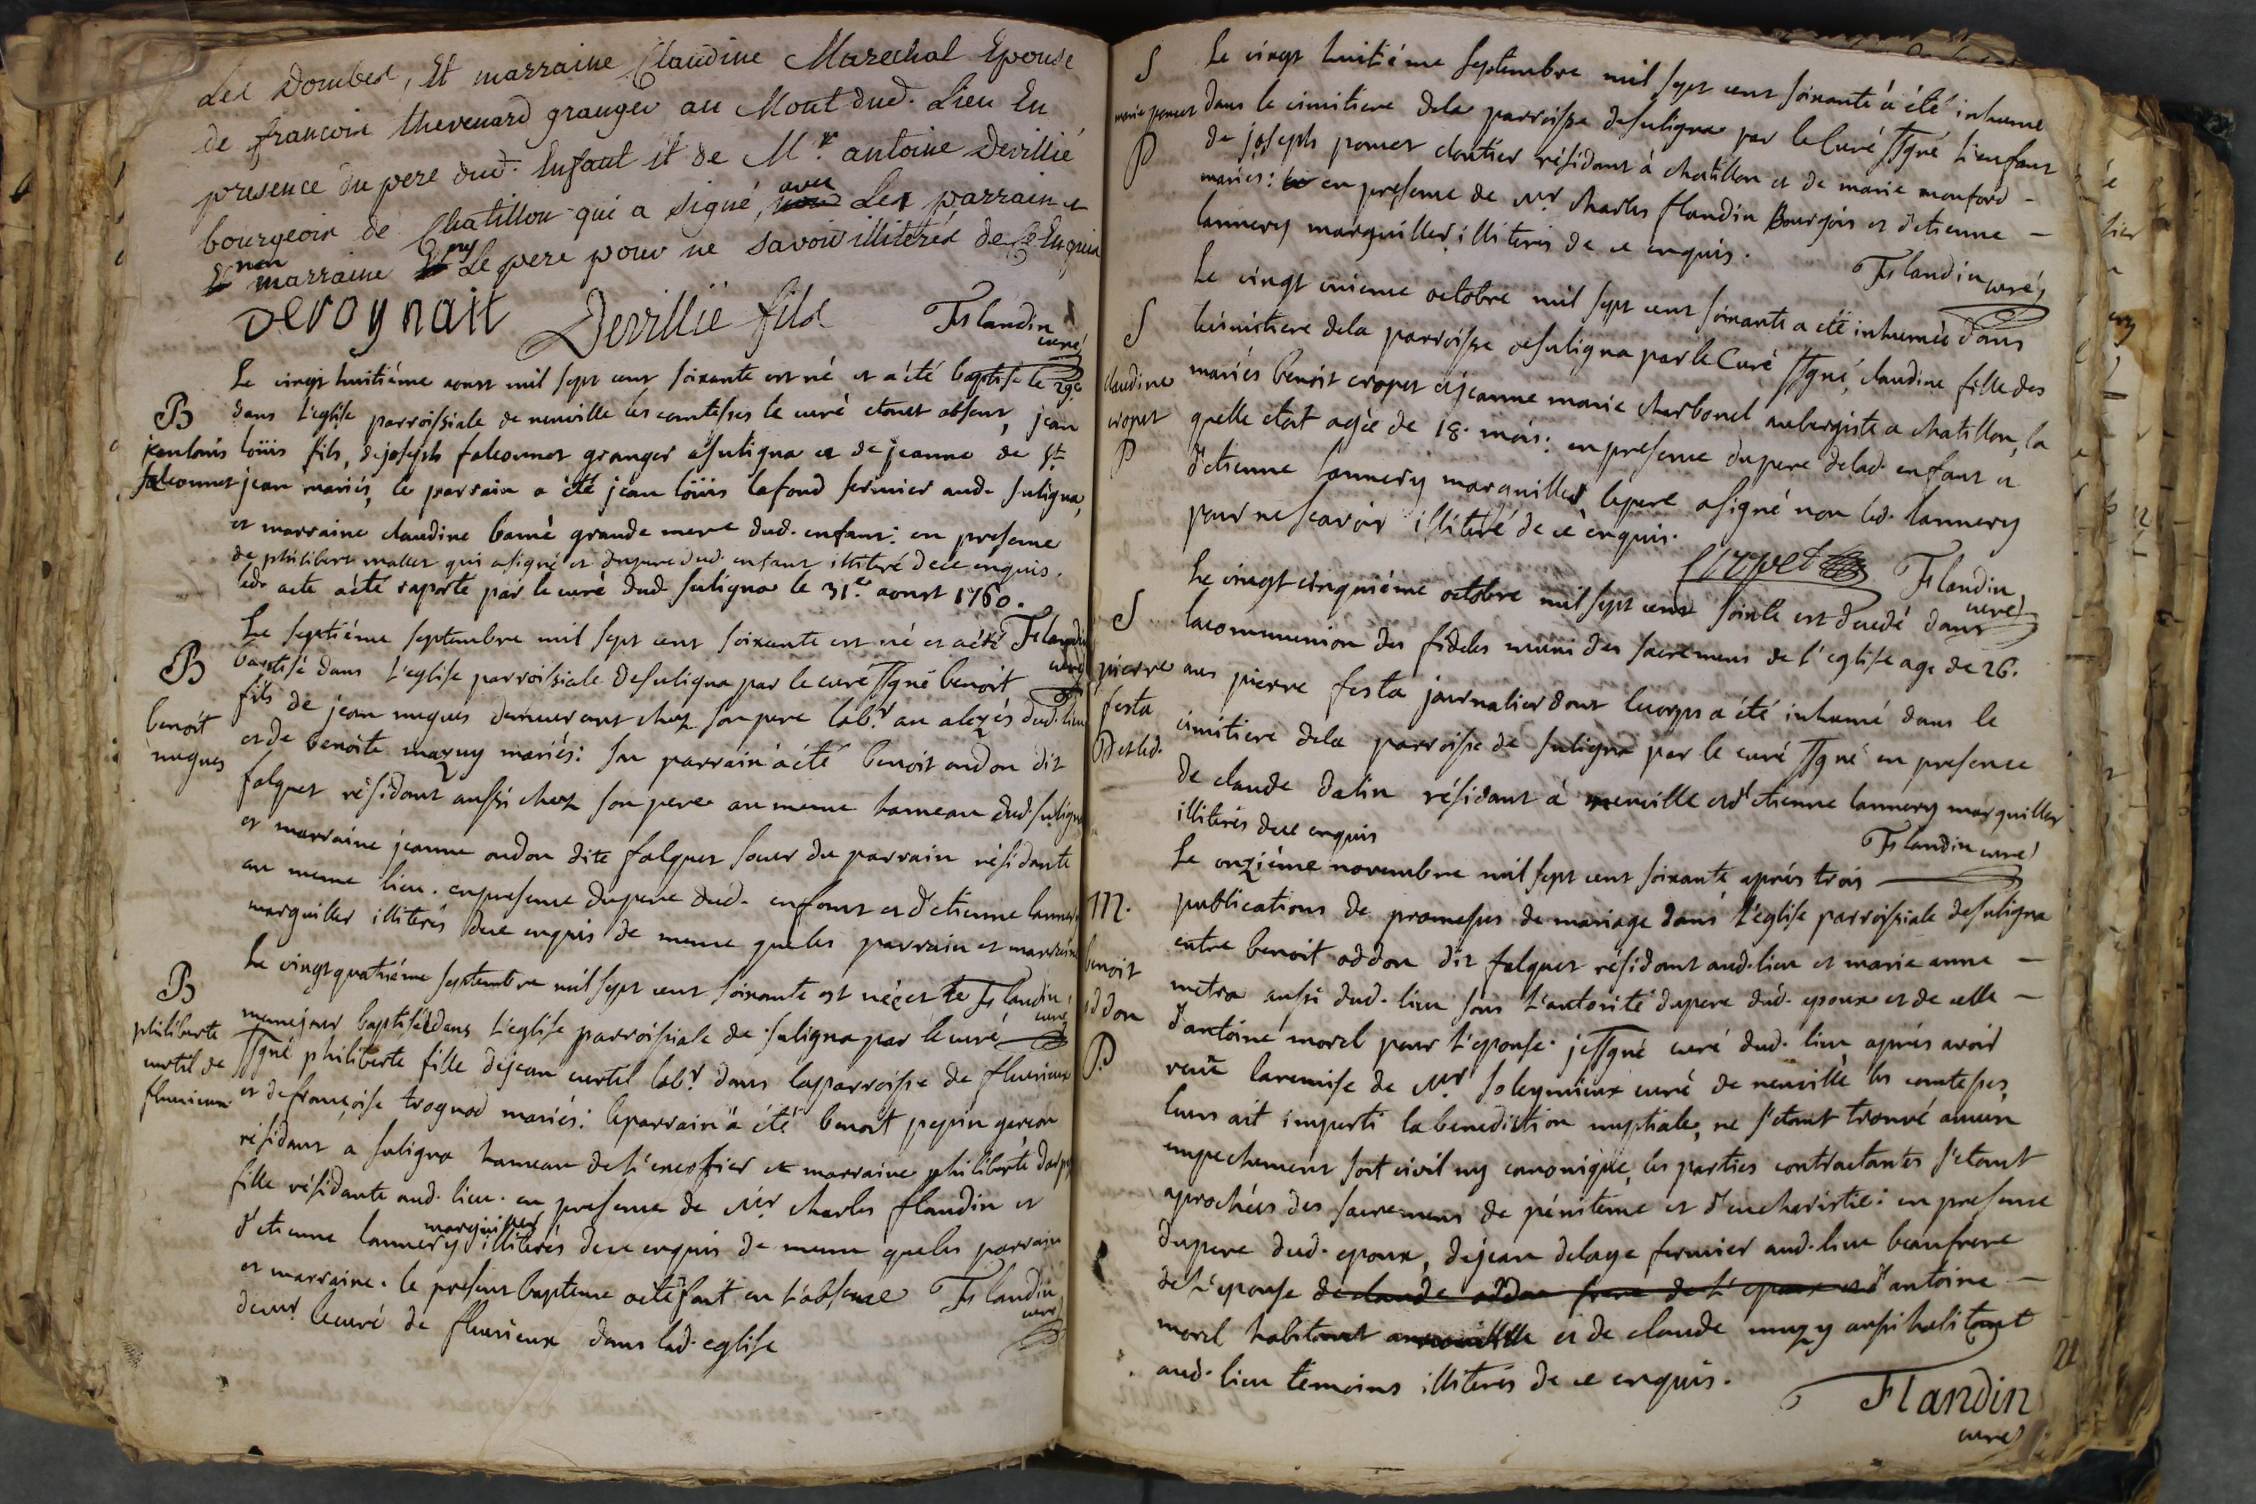 Les Dombes, Et marraine Claudine Marechal Epouse
de francois thevenard granger au Mont dud. Lieu En
presence du pere dud. Enfant et de Mr. antoine Devillié
bourgeois de Chatillon qui a signé, avec Les parrain et
non marraine ny Le pere pour ne savoir illiterés de ce Enquis
Devoynait Devillié fils Flandin curé
Le vingt huitiéme aoust mil sept cent soixante est né et a été baptisé le 29e
B
dans l'eglise parroissiale de neuville les comtesses le curé etant absent, jean
jean louis
loüis fils, de joseph falconnet granger a suligna et de jeanne de st.
falconnet
jean mariés, le parrain a été jean loüis lafond fermier aud. suligna,
et marraine claudine bamé grande mere dud. enfant: en presence
de philibert mallet qui a signé et du pere dud. enfant illitéré de ce enquis.
led. acte a été raporté par le curé dud. suligna le 31.e aoust 1760.
Le septiéme septembre mil sept cent soixante est né et a été Flandin curé
B
baptisé dans l'eglise parroissiale de suligna par le curé ssgné benoit
fils de jean nugues demeurant chez son pere labr. au alezés dud. lieu
benoit
et de benoite mazuy mariés: son parrain a été benoit oudon dit
nugues
falquet résidant aussi chez son pere au meme hameau dud. suligna
et marraine jeanne oudon dite falquet soeur du parrain résidante
au meme lieu. en presence du pere dud. enfant et d'etienne lannery
marguiller illiterés de ce enquis de meme que les parrain et marraine
Le vingt quatriéme septembre mil sept cent soixante est néé et le Flandin curé
B
meme jour baptiséé dans l'eglise parroissiale de suligna par le curé
philiberte
ssgné philiberte fille de jean curtil labr. dans la parroisse de flurieux
curtil de
et de francoise trognod mariés: le parrain a été benoit pepin garcon
flurieux
résidant a suligna hameau de l'encossier et marraine philiberte
fille résidante aud. lieu. en presence de Mr. charles flandin et
d'etienne lannery marguiller illiterés de ce enquis de meme que les parrain
et marraine. le present bapteme a été fait en l'absence Flandin curé
de mr. le curé de flurieux dans lad. eglise
S
Le vingt huitiéme septembre mil sept cent soixante a été inhumé
marie pomet
dans le cimitiere de la parroisse de suligna par le Curé ssgné l'enfant
P
de joseph pomet cloutier résidant à chatillon et de marie monford
mariés: en presence de Mr. charles flandin Bourgois et d'etienne
lannery marguiller, illiterés de ce enquis.
Flandin curé
Le vingt onieme octobre mil sept cent soixante a été inhumée dans
S
le cimitiere de la parroisse de suligna par le Curé ssgné, claudine fille des
claudine
mariés benoit cropet et jeanne marie charbonel aubergiste a chatillon, la
cropet
quelle etoit agée de 18. mois: en presence du pere delad. enfant et
P
d'etienne lannery marguiller, le pere a signé non led. lannery
pour ne scavoir illitéré de ce enquis.
Cropet Flandin curé
Le vingt cinquiéme octobre mil sept cent soixte est decedé dans
S
la communion des fideles muni des sacremens de l'eglise age de 26.
pierre
ans pierre festa journalier dont le corps a été inhumé dans le
festa
cimitiere de la parroisse de suligna par le curé ssgné en presence
de claude dalin résidant à neuville et d'etienne lannery marguiller
illiterés de ce enquis
Flandin curé
Le onziéme novembre mil sept cent soixante aprés trois
M.
publications de promesses de mariage dans l'eglise parroissiale de suligna
benoit
entre benoit oddon dit falquet résidant aud. lieu et marie anne
oddon
metra aussi dud. lieu sous l'autorité du pere dud. epoux et de celle
P
d'antoine morel pour l'epouse. je ssgné curé dud. lieu aprés avoir
reçu la remise de Mr. soleymieux curé de neuville les comtesses,
leurs ait imparti la benediction nuptiale, ne s'etant trouvé aucun
empechement soit civil ny canonique, les parties contractantes s'etant
aprochées des sacremens de péniteme et d'eucharistie: en presence
du pere dud. epoux, de jean delaye fermier aud. lieu beaufrere
de l'epouse de claude oddon frere de l'epoux et d'antoine
morel habitant a neuville et de claude muzy aussi habitant
aud. lieu témoins illiterés de ce enquis.
Flandin
curé
21